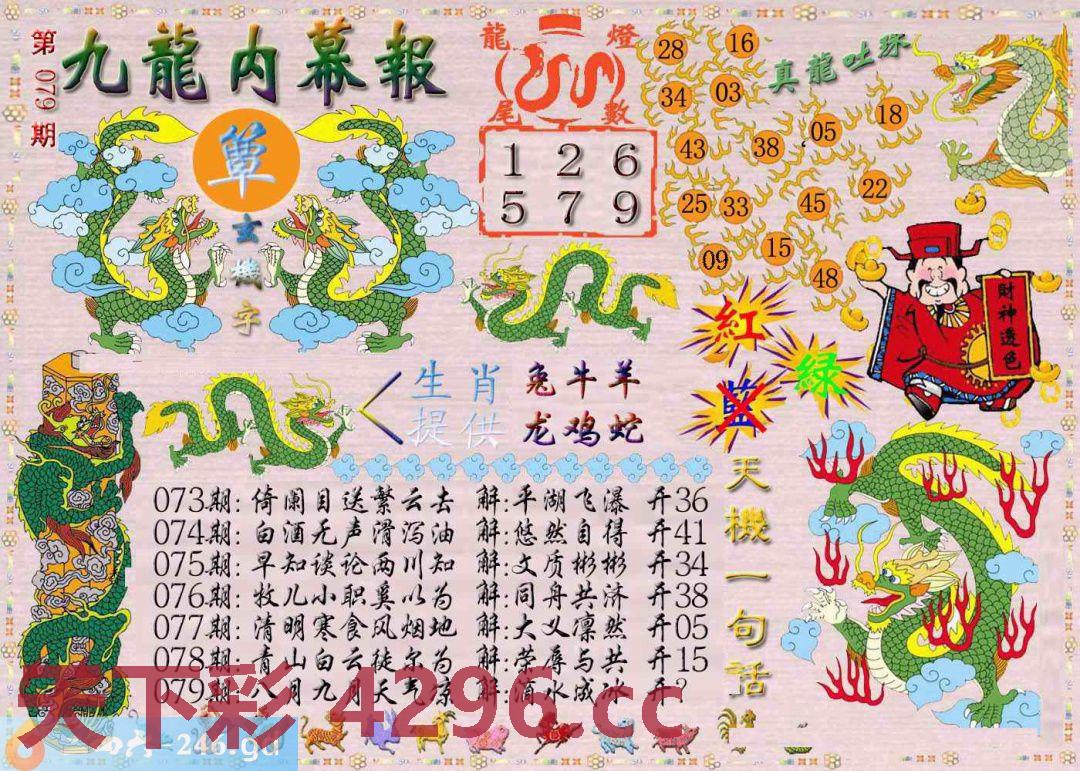 第079期
九龍内幕報
玄機字
龍燈
尾數
1 2 6
5 7 9
真龍吐珠
28 16
34 03
43 38 05 18
25 33 45 22
09 15 48
財神透色
紅
藍
绿
生肖 兔牛羊
提供 龙鸡蛇
天機一句话
073期: 倚阑目送繁云去 解:平湖飞瀑 开36
074期: 白酒无声滑泻油 解:悠然自得 开41
075期: 早知谈论两川知 解:文质彬彬 开34
076期: 牧儿小职奚以为 解:同舟共济 开38
077期: 清明寒食风烟地 解:大义凛然 开05
078期: 青山白云徒尔为 解:荣辱与共 开15
079期: 八月九月天气凉 解:滴水成冰 开?
天下彩 4296.cc
=246.gd